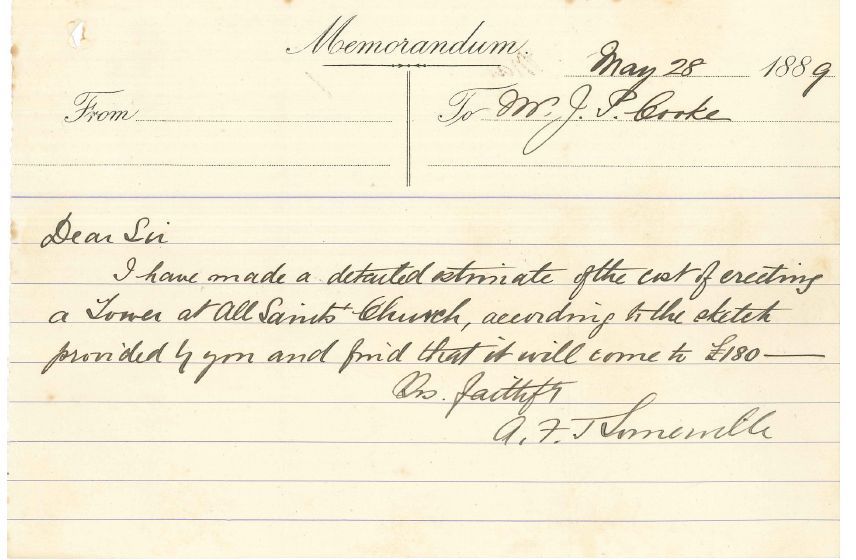 Memorandum.
May 28 1889
From To Mr. J. P. Cooke
Dear Sir
I have made a detailed estimate of the cost of erecting
a Tower at All Saints Church, according to the sketch
provided by you and find that it will come to £180 —
Yrs. faithfy
A. F. Somerville